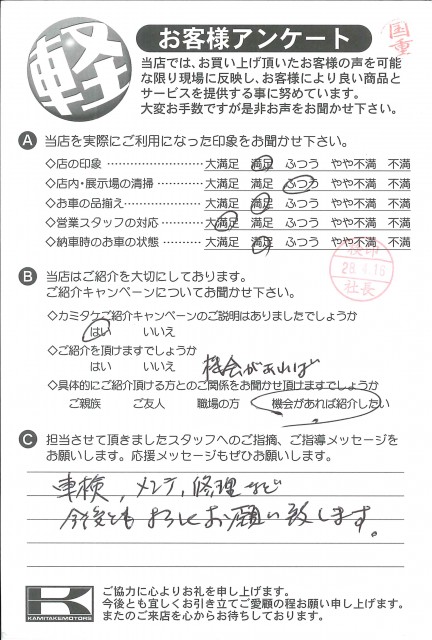 軽
お客様アンケート
国重
当店では、お買い上げ頂いたお客様の声を可能
な限り現場に反映し、お客様により良い商品と
サービスを提供する事に努めています。
大変お手数ですが是非お声をお聞かせ下さい。
A 当店を実際にご利用になった印象をお聞かせ下さい。
◇店の印象 ………………… 大満足 満足 ふつう やや不満 不満
◇店内・展示場の清掃………… 大満足 満足 ふつう やや不満 不満
◇お車の品揃え………………… 大満足 満足 ふつう やや不満 不満
◇営業スタッフの対応………… 大満足 満足 ふつう やや不満 不満
◇納車時のお車の状態………… 大満足 満足 ふつう やや不満 不満
28.4.16
社長
B 当店はご紹介を大切にしてあります。
ご紹介キャンペーンについてお聞かせ下さい。
◇カミタケご紹介キャンペーンのご説明はありましたでしょうか
はい いいえ
◇ご紹介を頂けますでしょうか
はい いいえ 機会があれば
◇具体的にご紹介頂ける方とのご関係をお聞かせ頂けますでしょうか
ご親族 ご友人 職場の方 機会があれば紹介したい
C 担当させて頂きましたスタッフへのご指摘、ご指導メッセージを
お願いします。応援メッセージもぜひお願いします。
車検、メンテ、修理など
今後ともよろしくお願い致します。
K
KAMITAKEMOTORS
ご協力に心よりお礼を申し上げます。
今後とも宜しくお引き立てご愛顧の程お願い申し上げます。
またのご来店を心からお待ちしております。